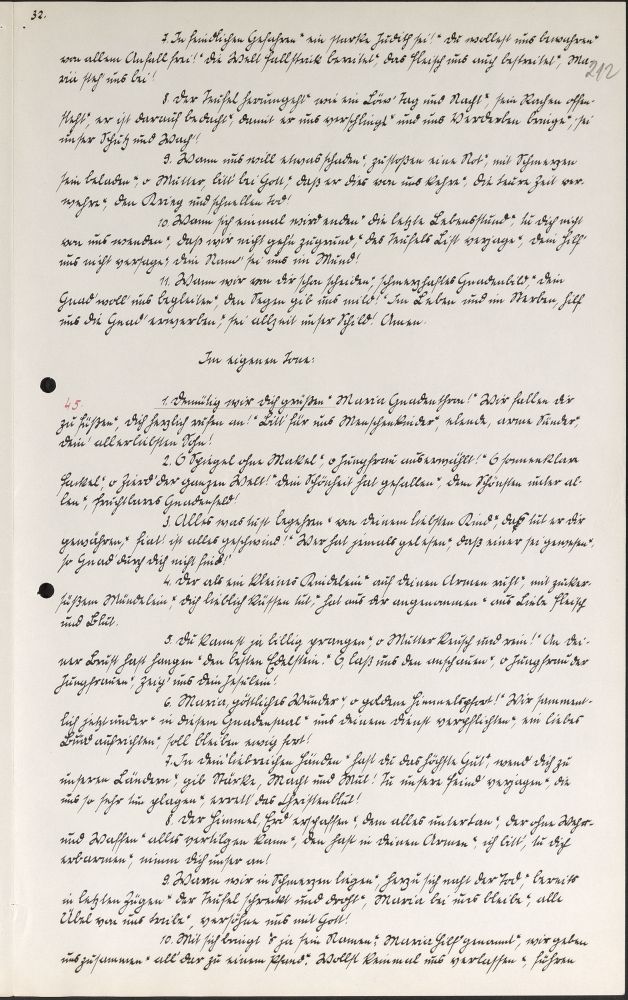 32.
212
7. In feindlichen Gefahren " ein starke Judith sei! " Du wollest uns bewahren "
von allem Anfall frei! " Die Welt Fallstrick bereitet, " das Fleisch uns auch bestreitet, " Ma-
ria steh uns bei!
8. Der Teufel herumgeht " wie ein Löw' Tag und Nacht ", sein Rachen offen
steht ", er ist darauf bedacht ", damit er uns verschlinge " und uns Verderben bringe ", sei
unser Schutz und Wach'!
9. Wann uns will etwas schaden ", zustoßen eine Not ", mit Schmerzen
sein beladen ", o Mutter, bitt' bei Gott, " daß er dies von uns kehre ", die teure Zeit ver-
wehre ", den Krieg und schnellen Tod!
10. Wann sich einmal wird enden " die letzte Lebensstund ", tu dich nicht
von uns wenden ", daß wir nicht gehn zugrund, " des Teufels List verjage ", dein Hilf'
uns nicht versage, " dein Nam' sei uns im Mund!
11. Wann wir von dir schon scheiden, " schmerzhaftes Gnadenbild, " dein
Gnad' woll' uns begleiten ", den Segen gib uns mild! " Im Leben und im Sterben, " hilf
uns die Gnad' erwerben, " sei allzeit unser Schild! Amen.
Im eigenen Tone:
45.
1. Demütig wir dich grüßen " Maria Gnadenthron! " Wir fallen dir
zu Füßen ", dich herzlich rufen an! " Bitt' für uns Menschenkinder ", elende, arme Sünder ",
dein' allerliebsten Sohn!
2. O Spiegel ohne Makel ", o Jungfrau auserwählt! " O sonnenklare
Fackel ", o Zierd' der ganzen Welt! " dein Schönheit hat gefallen ", dem Schönsten unter al-
len ", fruchtbares Gnadenfeld!
3. Alles was tust begehren " von deinem liebsten Kind ", das tut er dir
gewähren, " fiat! ist alles geschwind! " Wer hat jemals gelesen ", daß einer sei gewesen ",
so Gnad' durch dich nicht find'!
4. Der als ein kleines Knäbelein " auf deinen Armen ruht ", mit zucker-
süßem Mündelein ", dich lieblich küssen tut, " hat aus dir angenommen " aus Liebe Fleisch
und Blut.
5. Du kannst ja billig prangen ", o Mutter keusch und rein! " An dei-
ner Brust hast hangen " den besten Edelstein. " O, laß uns den anschauen ", o Jungfrau der
Jungfrauen ", zeig' uns dein Jesulein!
6. Maria, göttliches Wunder ", o goldene Himmelspfort! " Wir samment-
lich jetzunder " in diesem Gnadensaal " uns deinem Dienst verpflichten ", ein liebes
Bund aufrichten ", soll bleiben ewig fort!
7. In dein' liebreichen Händen " hast du das höchste Gut ", wend' dich zu
unseren Ländern ", gib Stärke, Macht und Mut! Tu unsere Feind' verjagen ", die
uns so sehr tun plagen ", errett' das Christenblut!
8. Der Himmel, Erd' erschaffen ", dem alles untertan ", der ohne Wehr
und Waffen " alles vertilgen kann ", den hast in deinen Armen ", ich bitt', tu dich
erbarmen ", nimm dich unser an!
9. Wann wir in Schmerzen liegen ", herzu sich naht der Tod ", bereits
in letzten Zügen " der Teufel schreckt und droht ", Maria bei uns bleibe ", alle
Übel von uns treibe ", versöhne uns mit Gott!
10. Mit sich bringt's ja sein Namen, " Maria Hilf genannt ", wir geben
uns zusammen " all' dir zu einem Pfand ". Wollst keinmal uns verlassen ", führen